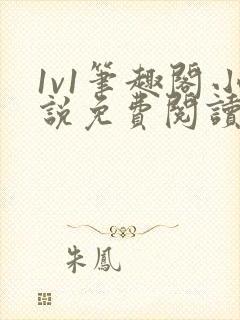 1v1筆趣閣.小
說免費閱讀
朱鳳